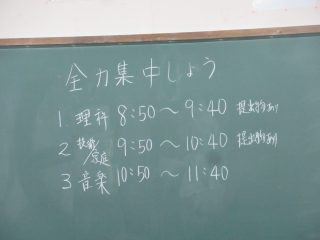 全力集中しよう
1. 理科 8:50〜9:40 提出物あり
2 技術/家庭 9:50〜10:40 提出物あり
3 音楽 10:50〜11:40